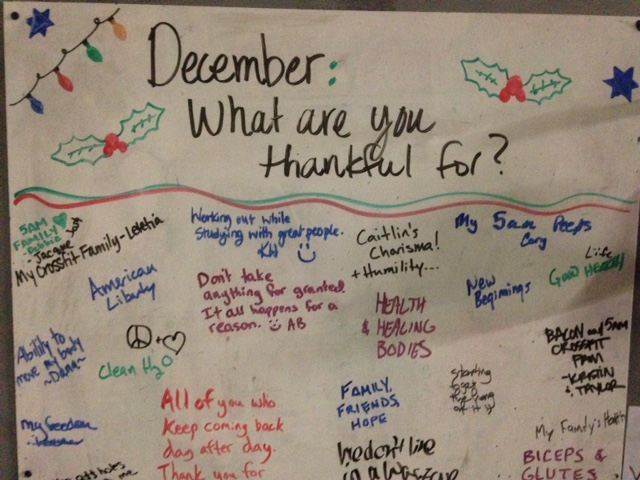 December:
What are you
thankful for?
5AM
FAMILY
Debbie
Jacque
My Crossfit Family-Leletia
Working out while
studying with great people.
KH
Caitlin's
Charisma!
+ Humility...
My 5am Peeps
Cory
Life
Good Health
American
Liberty
Don't take
anything for granted
It all happens for a
reason. AB
New
Beginnings
HEALTH
& HEALING
BODIES
Ability to
move my body
~Dana~
+
Clean H2O
BACON and 5AM
CROSSFIT
FAM
-KRISTIN
TAYLOR
All of you who
keep coming back
day after day.
Thank you for
FAMILY,
FRIENDS,
HOPE
Starting
of it
My freedom
We don't live
in a
My Family's Health
BICEPS &
GLUTES